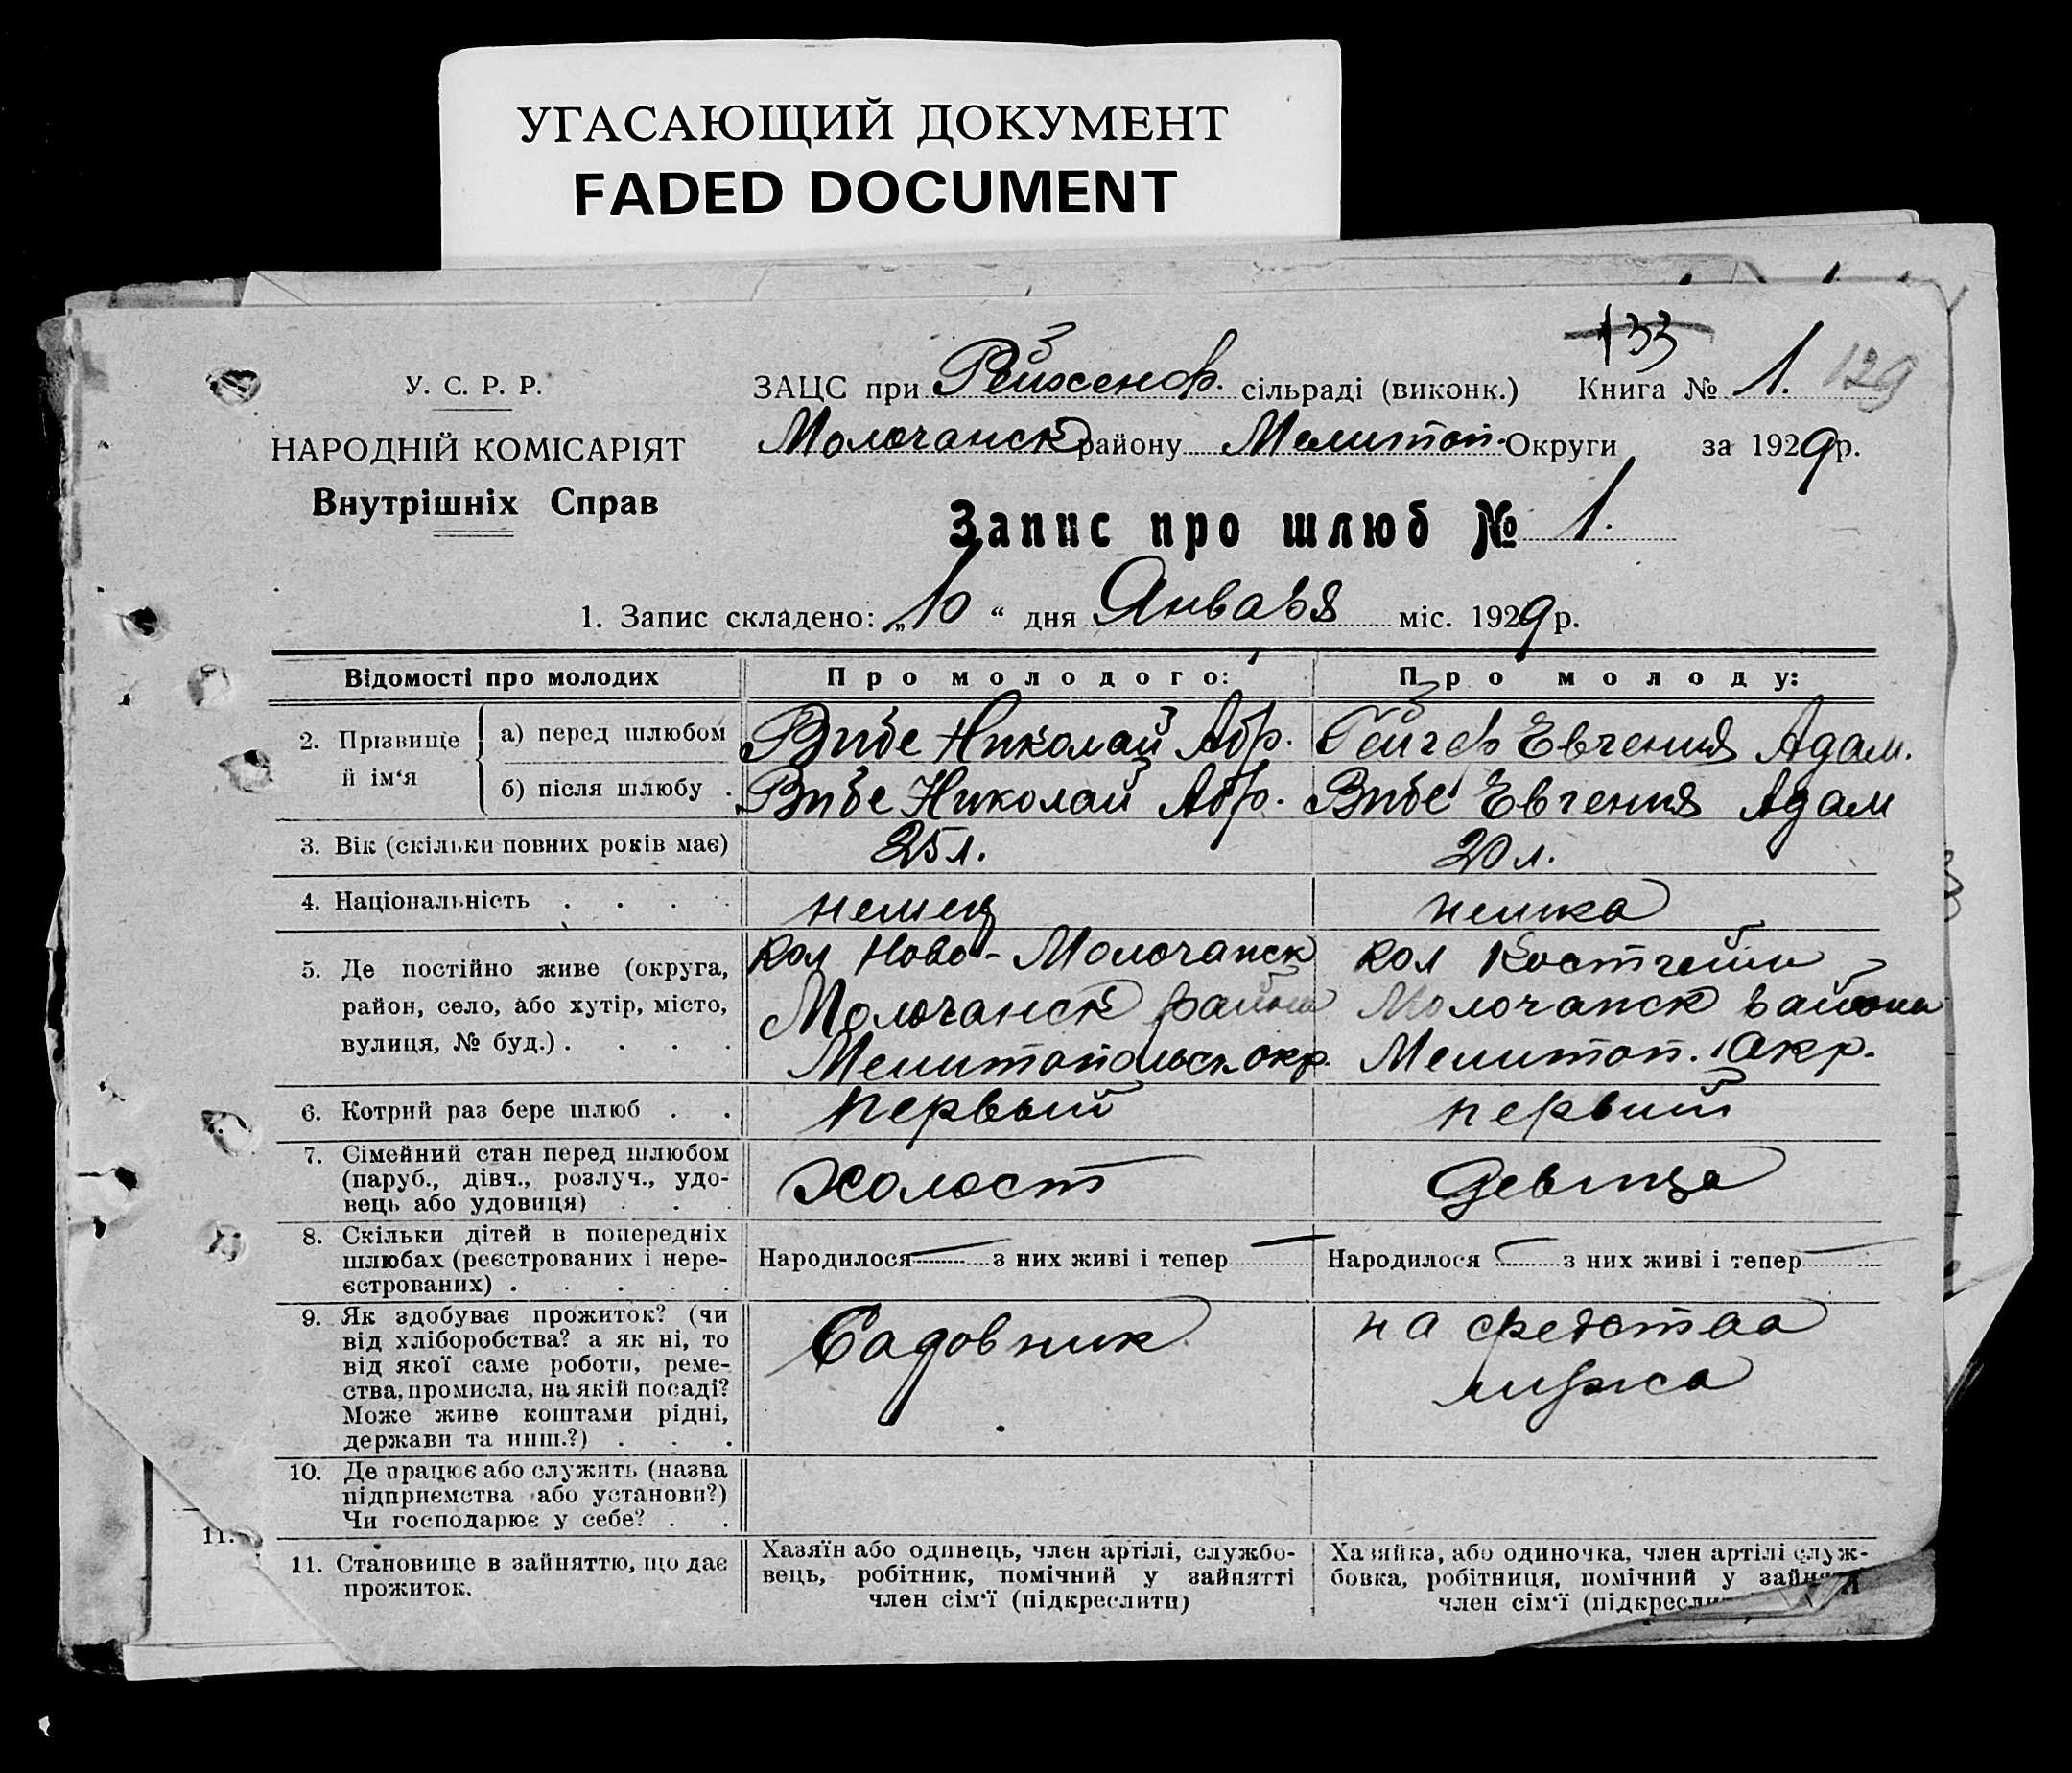 УГАСАЮЩИЙ ДОКУМЕНТ
FADED DOCUMENT
133
У. С. Р. Р.
НАРОДНІЙ КОМІСАРІЯТ
Внутрішніх Справ
ЗАЦС при Рейхенф. сільраді (виконк.) Книга № 1. 129
Молочанск району Мелитоп. Округи за 1929 р.
Запис про шлюб № 1.
1. Запис складено: „10“ дня Января міс. 1929 р.
Відомості про молодих
Про молодого:
Про молоду:
2. Прізвище й ім‘я
а) перед шлюбом
Вибе Николай Абр.
Гейгер Евгения Адам.
б) після шлюбу .
Вибе Николай Абр.
Вибе Евгения Адам
3. Вік (скільки повних років має)
25 л.
20 л.
4. Національність . . . .
немец
немка
5. Де постійно живе (округа,
район, село, або хутір, місто,
вулиця, № буд.) . . . .
кол Ново-Молочанск
Молочанск район
Мелитопольск окр.
кол
Молочанск района
Мелитоп. Окр.
6. Котрий раз бере шлюб . .
первый
первый
7. Сімейний стан перед шлюбом
(паруб., дівч., розлуч., удо-
вець або удовиця) . . .
Холост
Девица
8. Скільки дітей в попередніх
шлюбах (реєстрованих і нере-
єстрованих) . . . . .
Народилося — з них живі і тепер —
Народилося — з них живі і тепер —
9. Як здобуває прожиток? (чи
від хліборобства? а як ні, то
від якої саме роботи, реме-
ства, промисла, на якій посаді?
Може живе коштами рідні,
держави та инш.?) . . .
Садовник
на средства
мужа
10. Де працює або служить (назва
підприємства або установи?)
Чи господарює у себе? . .
11.
11. Становище в зайняттю, що дає
прожиток.
Хазяїн або одинець, член артілі, службо-
вець, робітник, помічний у зайнятті
член сім‘ї (підкреслити)
Хазяйка, або одиночка, член артілі служ-
бовка, робітниця, помічний у
член сім‘ї